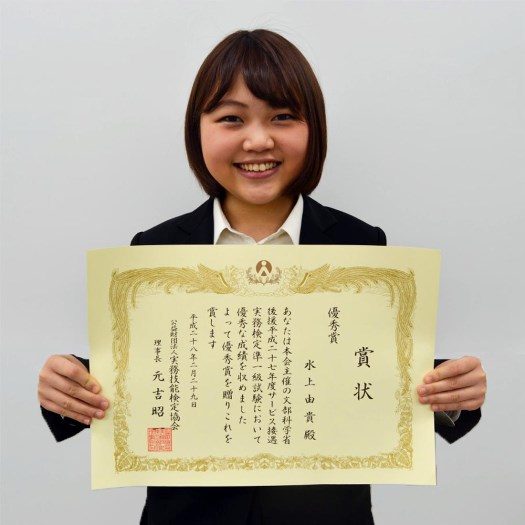 賞状
優秀賞
水上由貴殿
あなたは本会主催の文部科学省
後援平成二十七年度サービス接遇
実務検定準一級試験において
優秀な成績を収めました
よって優秀賞を贈りこれを
賞します
平成二十八年二月二十九日
公益財団法人実務技能検定協会
理事長 元吉昭一